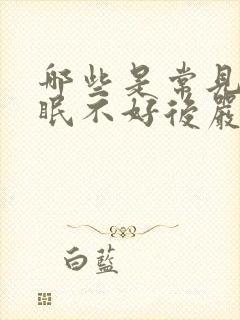 哪些是常見
眠不好後嚴
白藍